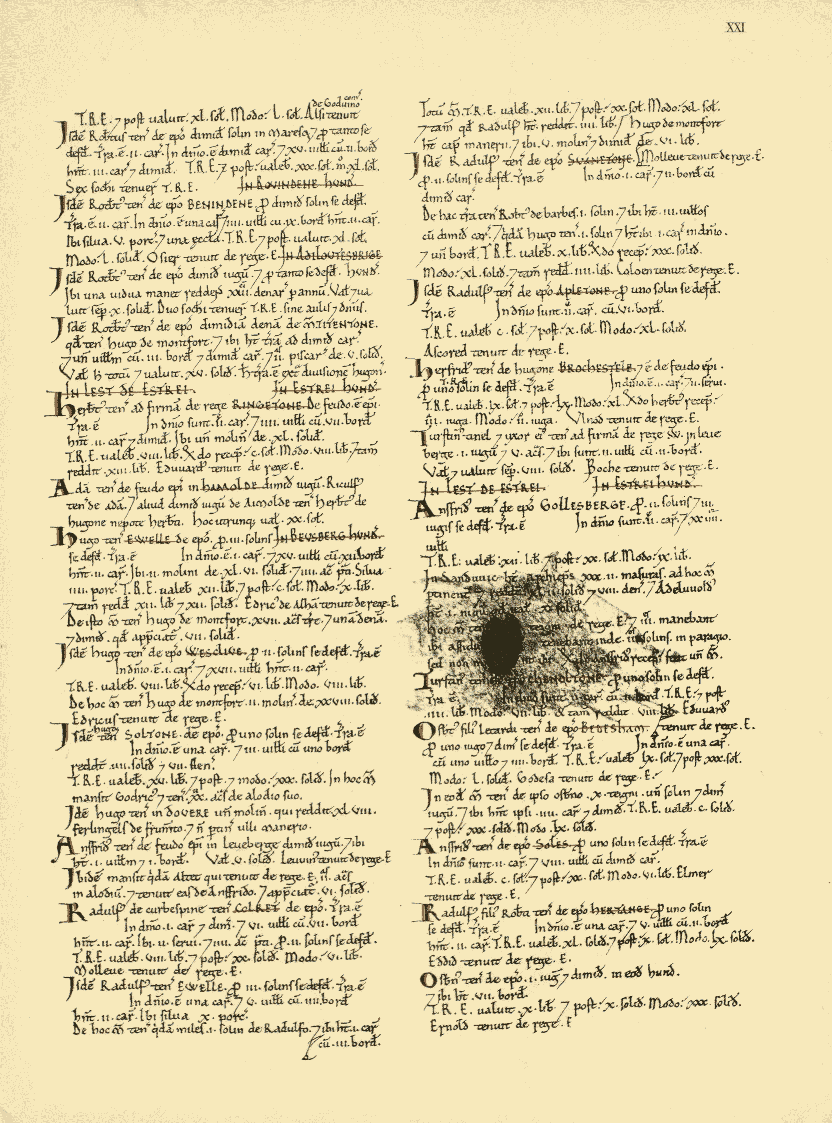 XXI
de Goduino comite
T.R.E. ⁊ post ualuit. xl. sol. Modo. l. sol. Alsi tenuit
Isdē Robtus ten̄ de epō dimid solin in Maresc. ⁊ p tanto se
defd. Tra.ē.ii. car. In dn̄io.ē dimid car. ⁊ xv. uilli cū.ii. bord
hn̄t.iii. car ⁊ dimid. T.R.E. ⁊ post. ualeb. xxx. sol. m̊.xl. sol.
Sex sochi tenuer T.R.E. In Rovindene hund.
Isdē Robt ten̄ de epō Benindene. p dimid solin se defd.
Tra.ē.ii. car. In dn̄io.ē una car. ⁊ uilli cū.ix. bord hn̄t.ii. car.
Ibi silua. v. porc. ⁊ una eccla. T.R.E. ⁊ post. ualuit. xl. sol.
Modo. l. solid. Osier tenuit de rege.E.
Isdē Robt ten̄ de epō dimid iugū. ⁊ p tanto se defd. Hund.
Ibi una uidua manet reddes xxiii. denar p annū. Val ⁊ ua
luit sep. x. solid. Duo sochi tenuer T.R.E. sine aulis ⁊ dn̄iis.
Isdē Robt ten̄ de epō dimidiā denā de m̄ Titentone.
qđ ten̄ Hugo de montfort. ⁊ ibi ht trā ad dimid car.
⁊ un̄ uillm cū.iii. bord ⁊ dimid car. ⁊ ii. piscar de. v. solid.
Val ⁊ ualuit. xv. solid. H tra.ē ext diuisionē hugon.
In lest de Estrei. In Estrei hund.
Herbt ten̄ ad firmā de rege Ringetone. De feudo.ē epi.
Tra.ē In dn̄io sunt.ii. car. ⁊ uilli cū bord
hn̄t.ii. car. ⁊ dimid. Ibi un̄ molin de.xl. solid.
T.R.E. ualeb. viii. lib. Xdo recep. c. sol. Modo. viii. lib. ⁊ tam
reddit. xiii. lib. Eduuard tenuit de rege.E.
Adā ten̄ de feudo epi in Hamolde dimid iugū. Riculf
ten̄ de Adā. ⁊ aliud dimid iugū de Aimolde ten̄ Herbt de
hugone nepote Herbti. Hoc utrunq ual. xx. sol.
Hugo ten̄ Ewelle de epō. p.iii. solins In Beusberg hund.
se defd. Tra.ē In dn̄io.ē.i. car. ⁊ xv. uilli cū. xii. bord
hn̄t.ii. car. Ibi.ii. molini de.xl. vi. solid. ⁊ iiii. ac pti. Silua
iiii. porc. T.R.E. ualeb. xii. lib. ⁊ post. c. sol. Modo. x. lib.
⁊ tam redd. xii. lib ⁊ xii. solid. Edric de Alha tenuit de rege.E.
De isto m̄ ten̄ Hugo de montfort. xvii. acs tre. ⁊ una denā.
⁊ dimid. qđ appciat. vii. solid.
Isdē Hugo ten̄ de epō Wesclive. p ii. solins se defd. Tra.ē
In dn̄io.ē.i. car. ⁊ xvii. uilli hn̄t.ii. car.
T.R.E. ualeb. viii. lib. Xdo recep. vi. lib. Modo. viii. lib.
De hoc m̄ ten̄ Hugo de montfort.ii. molin de.xxviii. solid.
Edricus tenuit de rege.E.
Isdē Hugo ten̄ Soltone. de epō. p uno solin se defd. Tra.ē
In dn̄io.ē una car. ⁊ iii. uilli cū uno bord
reddit.iiii. solid. ⁊ vii. den.
T.R.E. ualeb. xv. lib. ⁊ post. ⁊ modo. xxx. solid. In hoc m̄
mansit Godric ⁊ ten̄. xx. acs de alodio suo.
Idē Hugo ten̄ in Dovere un̄ molin. qui reddit.xl viii.
ferlingels de frumto. ⁊ n̄ ptin ulli manerio.
Ansfrid ten̄ de feudo epi in Leueberge dimid iugū. ⁊ ibi
ht.i. uillm ⁊ i. bord. Val. v. solid. Leuuin tenuit de rege.E
Ibidē mansit qdā alter qui tenuit de rege.E. ii. acs
in alodiū. ⁊ tenuit eas de Anffrido. ⁊ appciat. vi. solid.
Radulf de curbespine ten̄ Colret de epō. Tra.ē
In dn̄io.ē.i. car. ⁊ dim. ⁊ vi. uilli cū.iii. bord
hn̄t.ii. car. Ibi.ii. serui. ⁊ iiii. ac pti. p ii. solins se defd.
T.R.E. ualeb. viii. lib. ⁊ post. xx. solid. Modo. vi. lib.
Molleue tenuit de rege.E.
Isdē Radulf ten̄ Ewelle. p iii. solins se defd. Tra.ē
In dn̄io.ē una car. ⁊ v. uilli cū.iiii. bord
hn̄t.ii. car. Ibi silua x. porc.
De hoc m̄ ten̄ qdā miles.i. solin de Radulfo. ⁊ ibi ht.i. car
cū.iii. bord.
Totū m̄ T.R.E. ualeb. xii. lib. ⁊ post. xx. sol. Modo. xl. sol.
⁊ tam qđ Radulf ht. reddit.iiii. lib. Hugo de montfort
ht cap manerii. ⁊ ibi. v. molin ⁊ dimid de. vi. lib.
Isdē Radulf ten̄ de epō Swanetone. Molleue tenuit de rege.E.
p.ii. solins se defd. Tra.ē In dn̄io.i. car. ⁊ ii. bord cū
dimid car.
De hac tra ten̄ Robt de barbes.i. solin. ⁊ ibi ht.iii. uillos
cū dimid car. ⁊ qdā Hugo ten̄.i. solin ⁊ ht ibi.i. car in dn̄io.
⁊ un̄ bord. T.R.E. ualeb. x. lib. Xdo recep. xxx. solid.
Modo. xl. solid. ⁊ tam redd.iiii. lib. Coloen tenuit de rege.E.
Isdē Radulf ten̄ de epō Apletone. p uno solin se defd.
Tra.ē In dn̄io sunt.ii. car. cū. vi. bord.
T.R.E. ualeb. c. sol. ⁊ post. x. sol. Modo. xl. sol.
Ascored tenuit de rege.E.
Herfrid ten̄ de Hugone Brochestele. ⁊ ē de feudo epi.
p uno solin se defd. Tra.ē In dn̄io.ē.i. car. ⁊ ii. serui.
T.R.E. ualeb. lx. sol. ⁊ post. lx. Modo. xl. Xdo Herbt recep.
iii. iuga. Modo. ii. iuga. Vlnod tenuit de rege.E.
Turstin tinel ⁊ uxor ei ten̄ ad firmā de rege W. in Leue
berge.i. iugū ⁊ v. acs. ⁊ ibi sunt.ii. uilli cū.ii. bord.
Val ⁊ ualuit sep. viii. solid. Boche tenuit de rege.E.
In lest de Estrei. In Estrei hund.
Ansfrid ten̄ de epō Gollesberge. p.ii. solins ⁊ iii.
iugis se defd. Tra.ē In dn̄io sunt.ii. car. ⁊ xxiiii.
uilli
T.R.E. ualeb. xii. lib. ⁊ post. xx. sol. Modo. ix. lib.
In Sanduuic ht archieps xxx. ii. masuras. ad hoc m̄
ptinent solid ⁊ vii. den. ⁊ Adeluuold
ht.i. iugū xx solid.
hoc m̄ teigni de rege.E. ⁊ iii. manebant
ibi assidue iii. solins in paragio.
sed non m̄ Xdo ansfrid recep fecit un̄ m̄.
Turstin ten̄ de Cheneltone. p uno solin se defd.
Tra.ē In dn̄io sunt bord. T.R.E. ⁊ post
iiii. lib. Modo. vii. lib. & tam reddit. viii. lib. Eduuard
Osbn̄ fili Letardi ten̄ de epō Bedesham. tenuit de rege.E.
p uno iugo ⁊ dim̄ se defd. Tra.ē In dn̄io.ē una car.
cū uno uillo ⁊ iii. bord. T.R.E. ualeb lx. sol. ⁊ post. xxx. sol.
Modo. l. solid. Godesa tenuit de rege.E.
In eod m̄ ten̄ de ipso Osbno. x. teigni. un̄ solin ⁊ dim̄
iugū. ⁊ ibi hn̄t ipsi.iii. car ⁊ dimid. T.R.E. ualeb. c. solid.
⁊ post. xxx. solid. Modo. lx. solid.
Ansfrid ten̄ de epō Soles. p uno solin se defd. Tra.ē
In dn̄io sunt.ii. car. ⁊ viii. uilli cū dimid car.
T.R.E. ualeb. c. sol. ⁊ post. xx. sol. Modo. vi. lib. Elmer
tenuit de rege.E.
Radulf fili Robti ten̄ de epō Hertange. p uno solin
se defd. Tra.ē In dn̄io.ē una car. ⁊ v. uilli cū.ii. bord
hn̄t.ii. car. T.R.E. ualeb. xl. solid. ⁊ post. x. sol. Modo. lx. solid.
Eddid tenuit de rege.E.
Osbn̄ ten̄ de epō.i. iug ⁊ dimid. in eod hund.
⁊ ibi ht. vii. bord.
T.R.E. ualuit. x. lib. ⁊ post. x. solid. Modo. xxx. solid.
Ernold tenuit de rege.E